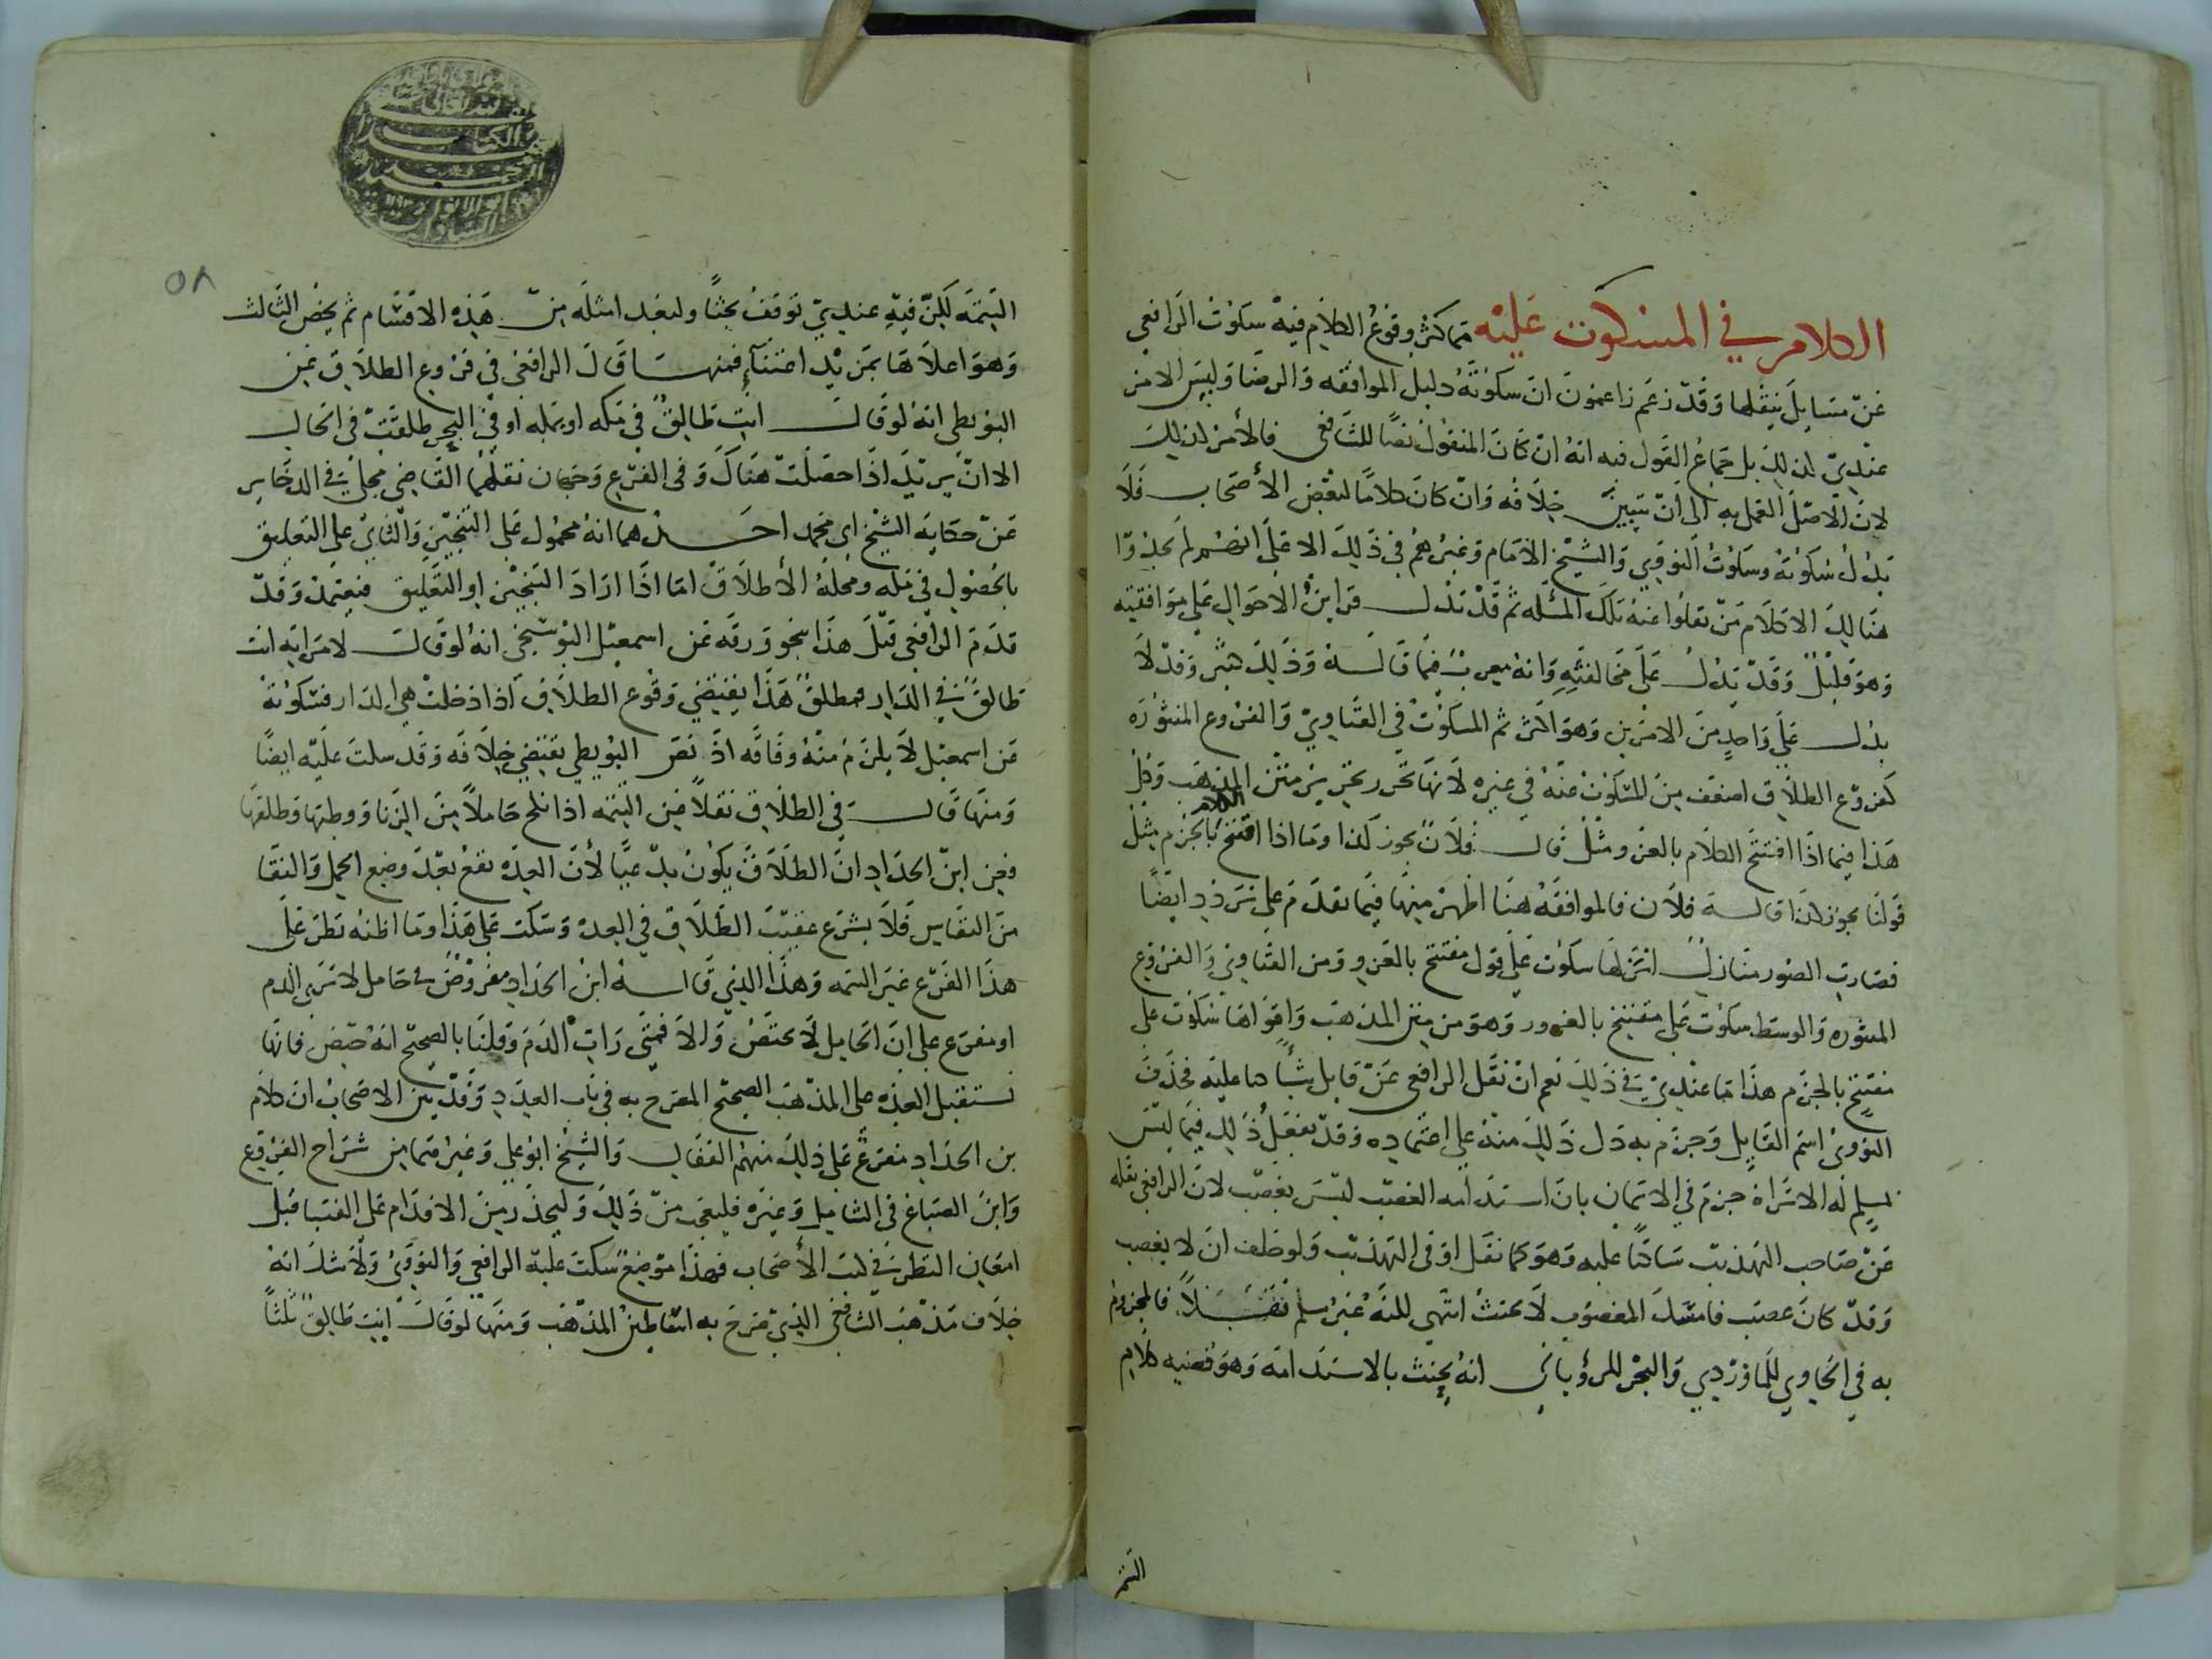 الكلام في المسكوت عليه مما كثر وقوع الكلام فيه سكوت الرافعي
عن مسايل ينقلها وقد زعم زاعمون ان سكوته دليل الموافقه والرضا وليس الامر
عندي كذلك بل جماع القول فيه انه ان كان المنقول نصا للشافعي فالأمر كذلك
لان الاصل العمل به الى ان تبين خلافه وان كان كلاما لبعض الأصحاب فلا
يدل سكوته وسكوت النووي والشيخ الامام وغيرهم في ذلك الا على انهم لم يجدوا
هنالك الا كلام من نقلوا عنه تلك المسله ثم قد تدل قراين الاحوال على موافقته
وهو قليل وقد تدل على مخالفته وانه معرب فيما قاله وذلك كثير وقد لا
يدل على واحد من الامرين وهو اكثر ثم المسكوت في الفتاوي والفروع المنثوره
كفروع الطلاق اضعف من المسكوت عنه في غيره لانها تحرر تحرير متن المذهب وكل
هذا فيما اذا افتتح الكلام بالعزو مثل قال فلان يجوز كذا وما اذا افتتح الكلام بالجزم مثل
قولنا يجوز كذا قاله فلان فالموافقه هنا اظهر منها فيما تقدم على تردد ايضا
فصارت الصور منازل انزلها سكوت على قول مفتتح بالعزو ومن الفتاوي والفروع
المنثوره والوسط سكوت على مفتتح بالعزو وهو من متن المذهب واقواها سكوت على
مفتتح بالجزم هذا ما عندي في ذلك نعم ان نقل الرافعي عن قايل شيأ ساكتا عليه فحذف
النووي اسم القايل وجزم به دل ذلك منه على اعتماده وقد يفعل ذلك فيما ليس
بمسلم له الا تراه جزم في الايمان بان استدامه الغصب ليس بغصب لان الرافعي نقله
عن صاحب التهذيب ساكتا عليه وهو كما نقل اذ في التهذيب ولو حلف ان لا يغصب
وقد كان غصب فامسك المغصوب لا يحنث انتهى لكنه غير مسلم نقلا فالمجزوم
به في الحاوي للماوردي والبحر للروياني انه يحنث بالاستدامه وهو قضيه كلام
التتمه
٥٨
التتمه لكن فيه عندي توقف بحثا ولنعد امثله من هذه الاقسام ثم نخص الثالث
وهو اعلاها بمزيد اعتنآء فمنها قال الرافعي في فروع الطلاق عن
البويطي انه لو قال انت طالق في مكه او بمكه او في البحر طلقت في الحال
الا ان يريد اذا حصلت هناك وفي الفرع وجهان نقلهما القاضي مجلي في الدخاير
عن حكايه الشيخ ابي محمد احدهما انه محمول على التنجيز والثاني على التعليق
بالحصول في مكه ومحله الأطلاق اما اذا اراد التنجيز او التعليق فيعتمد وقد
قدم الرافعي قبل هذا بنحو ورقه عن اسمعيل البوشنجي انه لو قال لامراته انت
طالق في الدار فمطلق هذا يقتضي وقوع الطلاق اذا دخلت هي الدار فسكوته
عن اسمعيل لا يلزم منه وفاقه اذ نص البويطي يقتضي خلافه وقد سكت عليه ايضا
ومنها قال في الطلاق نقلا عن التتمه اذا نكح حاملا من الزنا ووطئها وطلقها
فعن ابن الحداد ان الطلاق يكون بدعيا لأن العده تقع بعد وضع الحمل والنقا
من النفاس فلا يشرع عقيب الطلاق في العده وسكت على هذا وما اظنه نظر على
هذا الفرع غير التتمه وهذا الذي قاله ابن الحداد مفروض في حامل لا تري الدم
او مفرع على ان الحامل لا تحيض والا فمتى رات الدم وقلنا بالصحيح انه حيض فانها
تستقبل العده على المذهب الصحيح المصرح به في باب العدد وقد بين الاصحاب ان كلام
بن الحداد مفرع على ذلك منهم القفال والشيخ ابو علي وغيرهما من شراح الفروع
وابن الصباغ في الشامل وغيره فليعجب من ذلك وليحذر من الاقدام على الفتيا قبل
امعان النظر في كتب الأصحاب فهذا موضع سكت عليه الرافعي والنووي ولا شك انه
خلاف مذهب الشافعي الذي صرح به اساطين المذهب ومنها لو قال انت طالق ثلثا